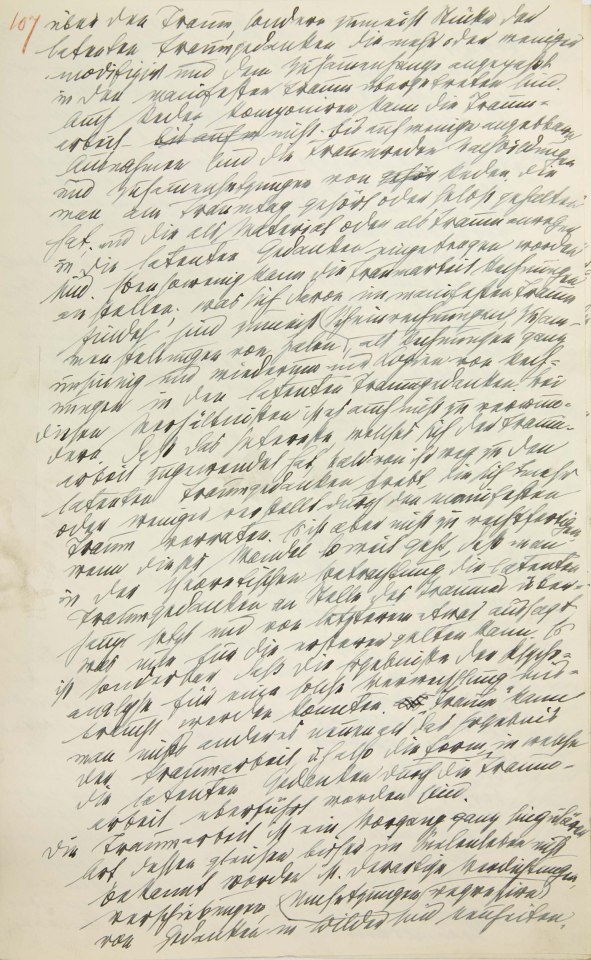 107
über den Traum, sondern zumeist Stücke der
latenten Traumgedanken die mehr oder weniger
modifizirt und dem Zusammenhange angepasst
in den manifesten Traum übergetreten sind.
Auch Reden komponiren kann die Traum-
arbeit nicht. Bis auf wenige angebbare
Ausnahmen sind die Traumreden Nachbildungen
und Zusammensetzungen von Reden, die
man am Traumtag gehört oder selbst gehalten
hat und die als Material oder als Traumanreger
in die latenten Gedanken eingetragen worden
sind. Ebensowenig kann die Traumarbeit Rechnungen
anstellen; was sich davon im manifesten Traum
findet, sind zumeist Zusam-
menstellungen von Zalen, Scheinrechnungen, als Rechnungen ganz
unsinnig und wiederum nur Kopien von Rech-
nungen in den latenten Traumgedanken. Bei
diesen Verhältnissen ist es auch nicht zu verwun-
dern, daß das Interesse welches sich der Traum-
arbeit zugewendet hat bald von ihr weg zu den
latenten Traumgedanken strebt, die sich mehr
oder weniger entstellt durch den manifesten
Traum verraten. Es ist aber nicht zu rechtfertigen
wenn dieser Wandel soweit geht, daß man
in der theoretischen Betrachtung die latenten
Traumgedanken an Stelle des Traumes über-
haupt setzt und von letzterem etwas aussagt
was nur für die ersteren gelten kann. Es
ist sonderbar, daß die Ergebnisse der Psycho-
analyse für eine solche Verwechslung miß-
braucht werden konnten. „Traum" kann
man nichts anderes nennen als das Ergebnis
der Traumarbeit, d h also die Form, in welche
die latenten Gedanken durch die Traum-
arbeit überführt worden sind.
Die Traumarbeit ist ein Vorgang ganz singulärer
Art dessen gleichen bisher im Seelenleben nicht
bekannt worden ist. Derartige Verdichtungen,
Verschiebungen, regressive Umsetzungen
von Gedanken in Bilder sind Neuheiten,